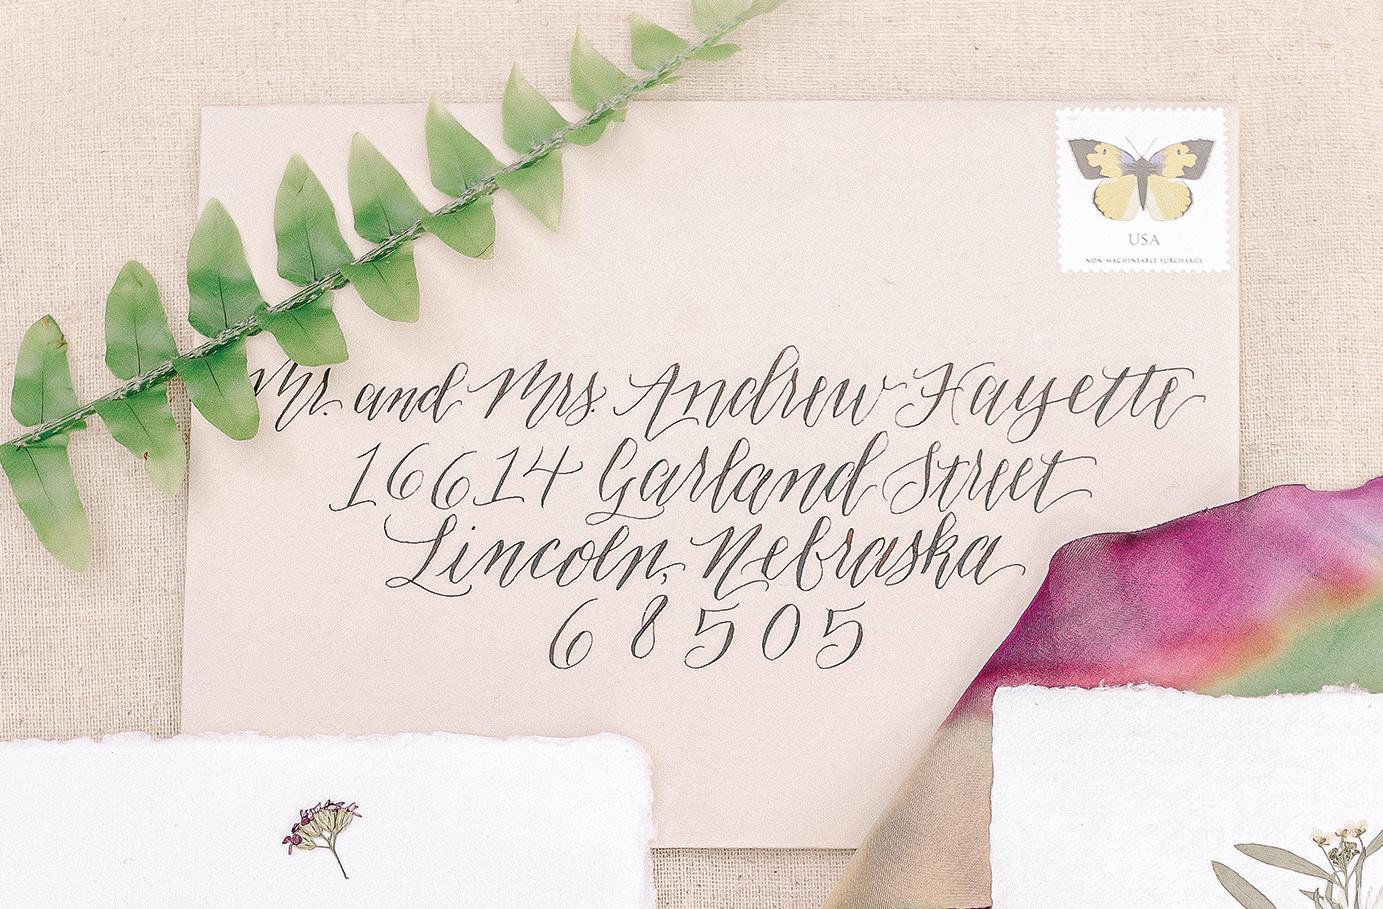 USA
NON-MACHINEABLE SURCHARGE
Mr. and Mrs. Andrew Fayette
16614 Garland Street
Lincoln, Nebraska
68505